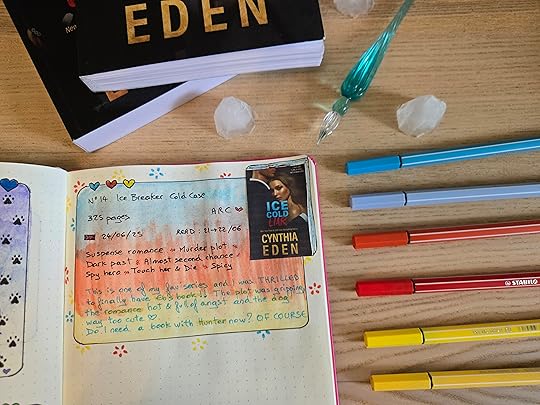 EDEN
New
N° 14 Ice Breaker Cold Case
325 pages
ARC
24/06/25
READ : 21 → 22/06
Suspense romance ~ Murder plot ~
Dark past & Almost second chance ~
Spy hero ~ Touch her & Die ~ Spicy
This is one of my fav series, and I was THRILLED
to finally have book!! The plot was gripping,
the romance hot & full of angst and the dog
way too cute
Do I need a book with Hunter now? OF COURSE
ICE
COLD
LIAR
CYNTHIA
EDEN
STABILO